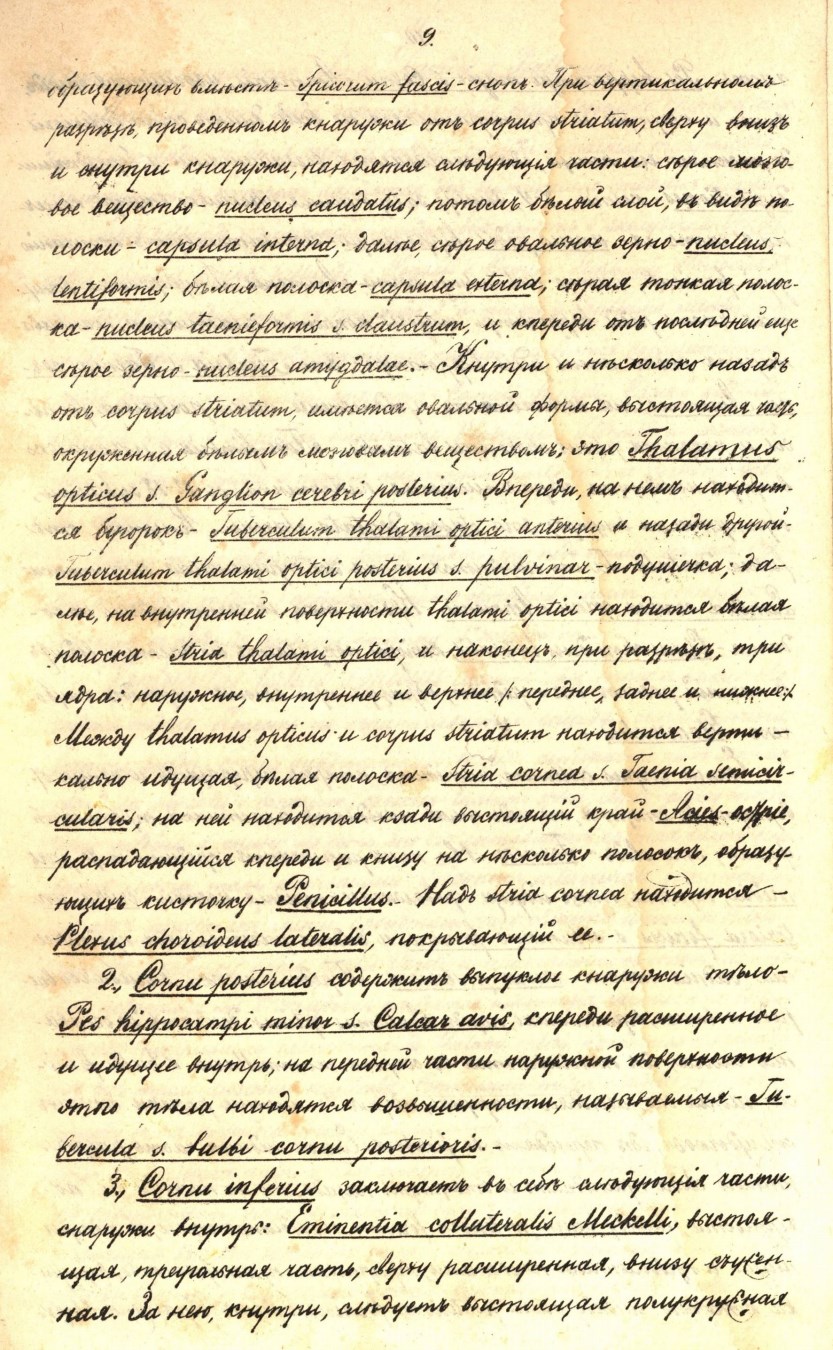 9.
образующихъ вмѣстѣ - Spicorum fascis - снопъ. При вертикальномъ
разрѣзѣ, проведенномъ кнаружи отъ corpus striatum, сверху внизъ
и снутри кнаружи, находятся слѣдующія части: сѣрое мозго-
вое вещество - nucleus caudatus; потомъ бѣлый слой, въ видѣ по-
лоски - capsula interna; далѣе, сѣрое овальное зерно - nucleus
lentiformis; бѣлая полоска - capsula externa; сѣрая тонкая полос-
ка - nucleus taenieformis s. claustrum, и кпереди отъ послѣдней еще
сѣрое зерно - nucleus amygdalae. - Кнутри и нѣсколько назадъ
отъ corpus striatum, имѣется овальной формы, выстоящая часть,
окруженная бѣлымъ мозговымъ веществомъ; это Thalamus
opticus s. Ganglion cerebri posterius. Впереди, на немъ находит-
ся бугорокъ - Tuberculum thalami optici anterius и назади другой -
Tuberculum thalami optici posterius s. pulvinar - подушечка; да-
лѣе, на внутренней поверхности thalami optici находится бѣлая
полоска - Stria thalami optici, и наконецъ, при разрѣзѣ, три
ядра: наружное, внутреннее и верхнее /: переднее, заднее и нижнее:/.
Между thalamus opticus и corpus striatum находится верти -
кально идущая, бѣлая полоска - Stria cornea s. Taenia semicir-
cularis; на ней находится кзади выстоящій край - Acies - остріе,
распадающійся кпереди и книзу на нѣсколько полосокъ, образу-
ющихъ кисточку - Penicillus. - Надъ stria cornea находится -
Plexus choroideus lateralis, покрывающій ее. -
2., Cornu posterius содержитъ выпуклое кнаружи тѣло -
Pes hippocampi minor s. Calcar avis, кпереди расширенное
и идущее внутрь; на передней части наружной поверхности
этого тѣла находятся возвышенности, называемыя - Tu-
bercula s. bulbi cornu posterioris. -
3., Cornu inferius заключаетъ въ себѣ слѣдующія части,
снаружи внутрь: Eminentia collateralis Meckelli, выстоя-
щая, треугольная часть, сверху расширенная, внизу съужен-
ная. За нею, кнутри, слѣдуетъ выстоящая полукружная